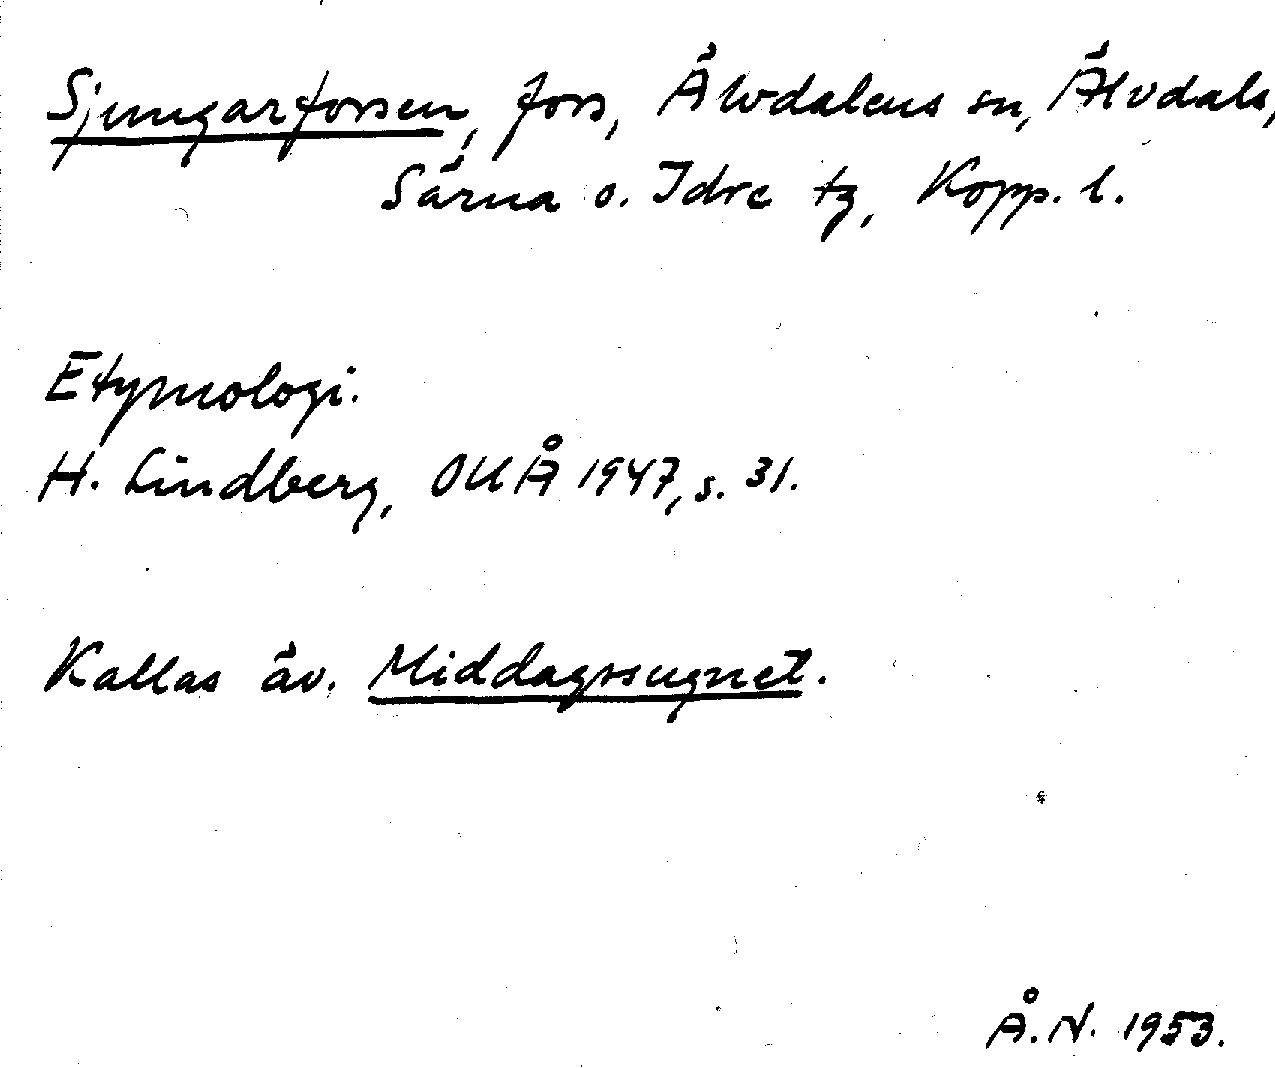 Sjungarforsen, fors, Älvdalens sn, Älvdals,
Särna o. Idre tg, Kopp. l.
Etymologi.
H. Lindberg, OUÅ 1947, s. 31.
Kallas äv. Middagssugnet.
Å. N. 1953.